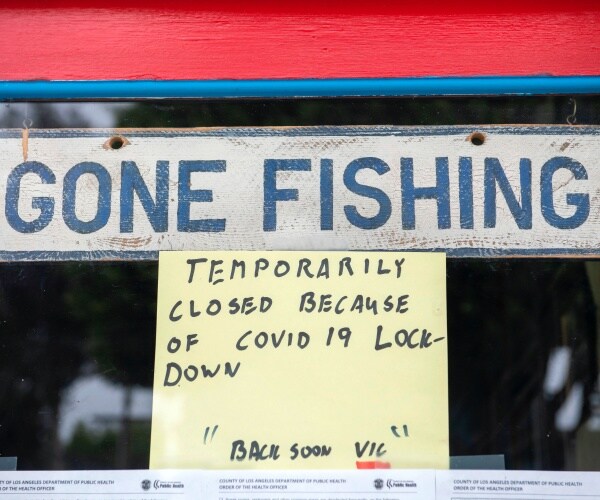 GONE FISHING
TEMPORARILY
CLOSED BECAUSE
OF COVID 19 LOCK-
DOWN
"BACK SOON VIC"
COUNTY OF LOS ANGELES DEPARTMENT OF PUBLIC HEALTH
ORDER OF THE HEALTH OFFICER
Public Health
COUNTY OF LOS ANGELES DEPARTMENT OF PUBLIC HEALTH
ORDER OF THE HEALTH OFFICER
Public Health
COUNTY OF LOS ANGELES DEPARTMENT OF PUBLIC HEALTH
ORDER OF THE HEALTH OFFICER